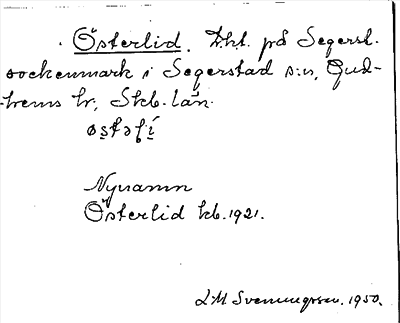 Österlid. Trkl. på Segerst.
sockenmark i Segerstad s:n, Gud-
hems hr, Skb. län.
Nynamn
Österlid kb. 1921.
L M Svenungsson. 1950.